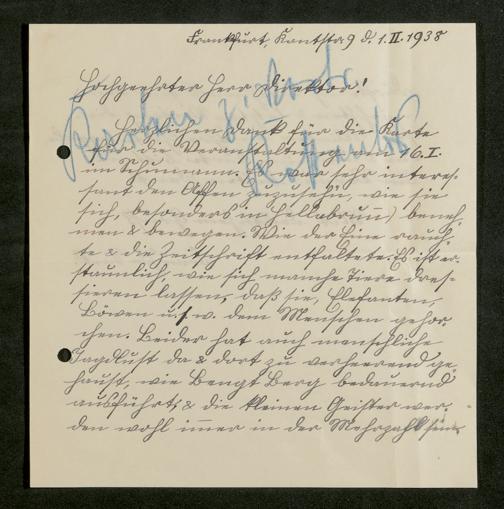 Frankfurt, Kantstr. 9 d. 1. II. 1938
Hochgeehrter Herr Direktor!
Herzlichen Dank für die Karte
für die Veranstaltung am 16. I.
im Schumann. Es war sehr interes-
sant den Affen zuzusehen, wie sie
sich, besonders in Hellabrunn) beneh-
men & bewegen. Wie der Eine rauch-
te & die Zeitschrift entfaltete. Es ist er-
staunlich, wie sich manche Tiere dres-
sieren lassen, daß sie, Elefanten,
Löwen u.s.w. dem Menschen gehor-
chen. Leider hat auch menschliche
Jagdlust da & dort zu verheerend ge-
haust, wie Bengt Berg bedauernd
ausführt, & die kleinen Geister wer-
den wohl immer in der Mehrzahl sein.